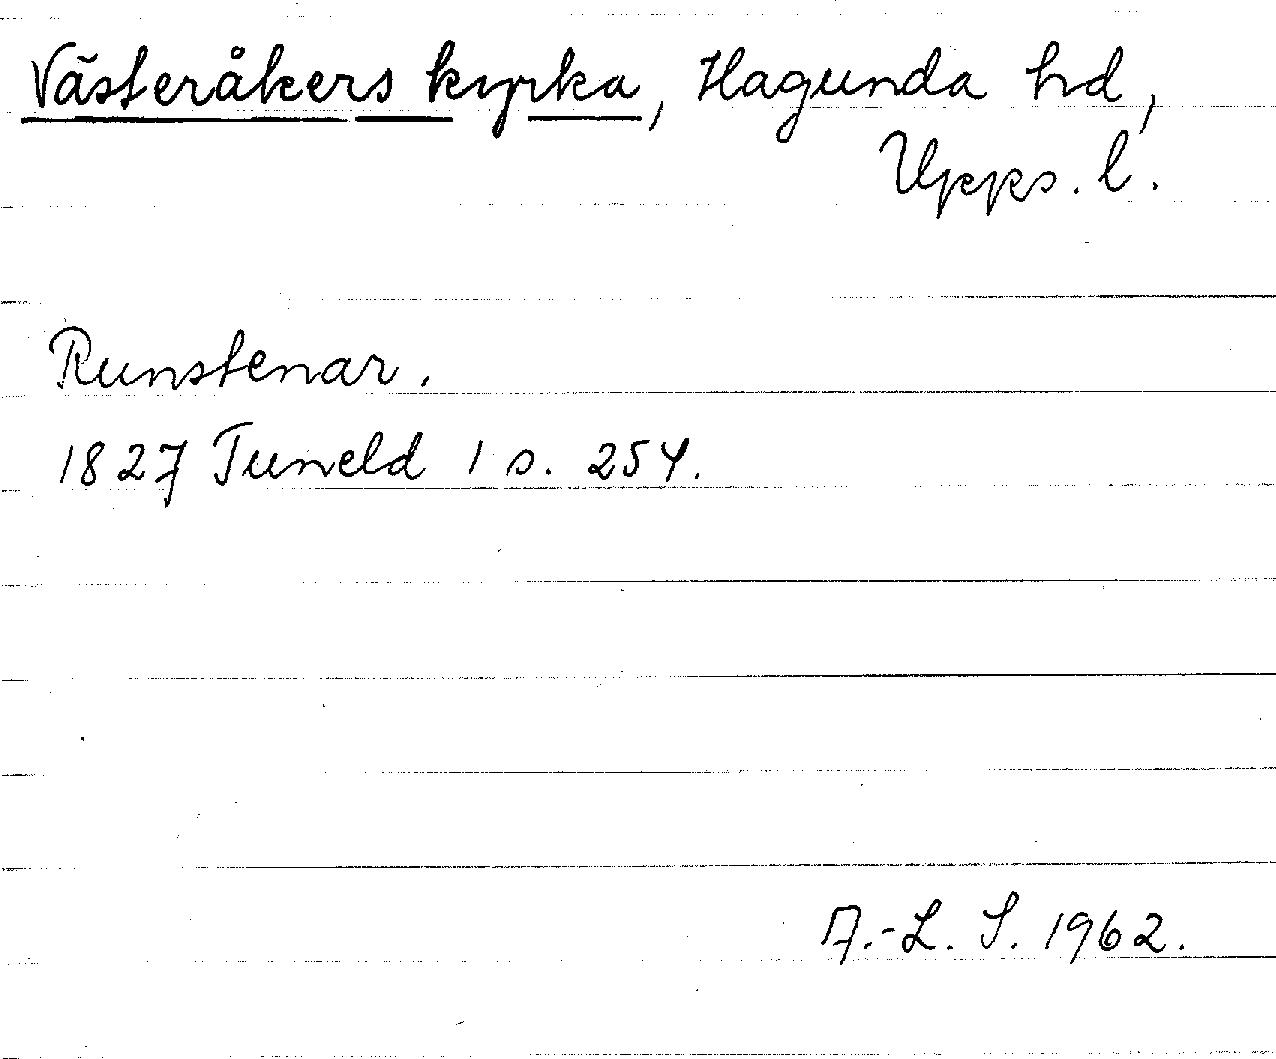 Västeråkers kyrka, Hagunda hd,
Upps. l.
Runstenar.
1827 Tuneld 1 s. 254.
A.-L. S. 1962.